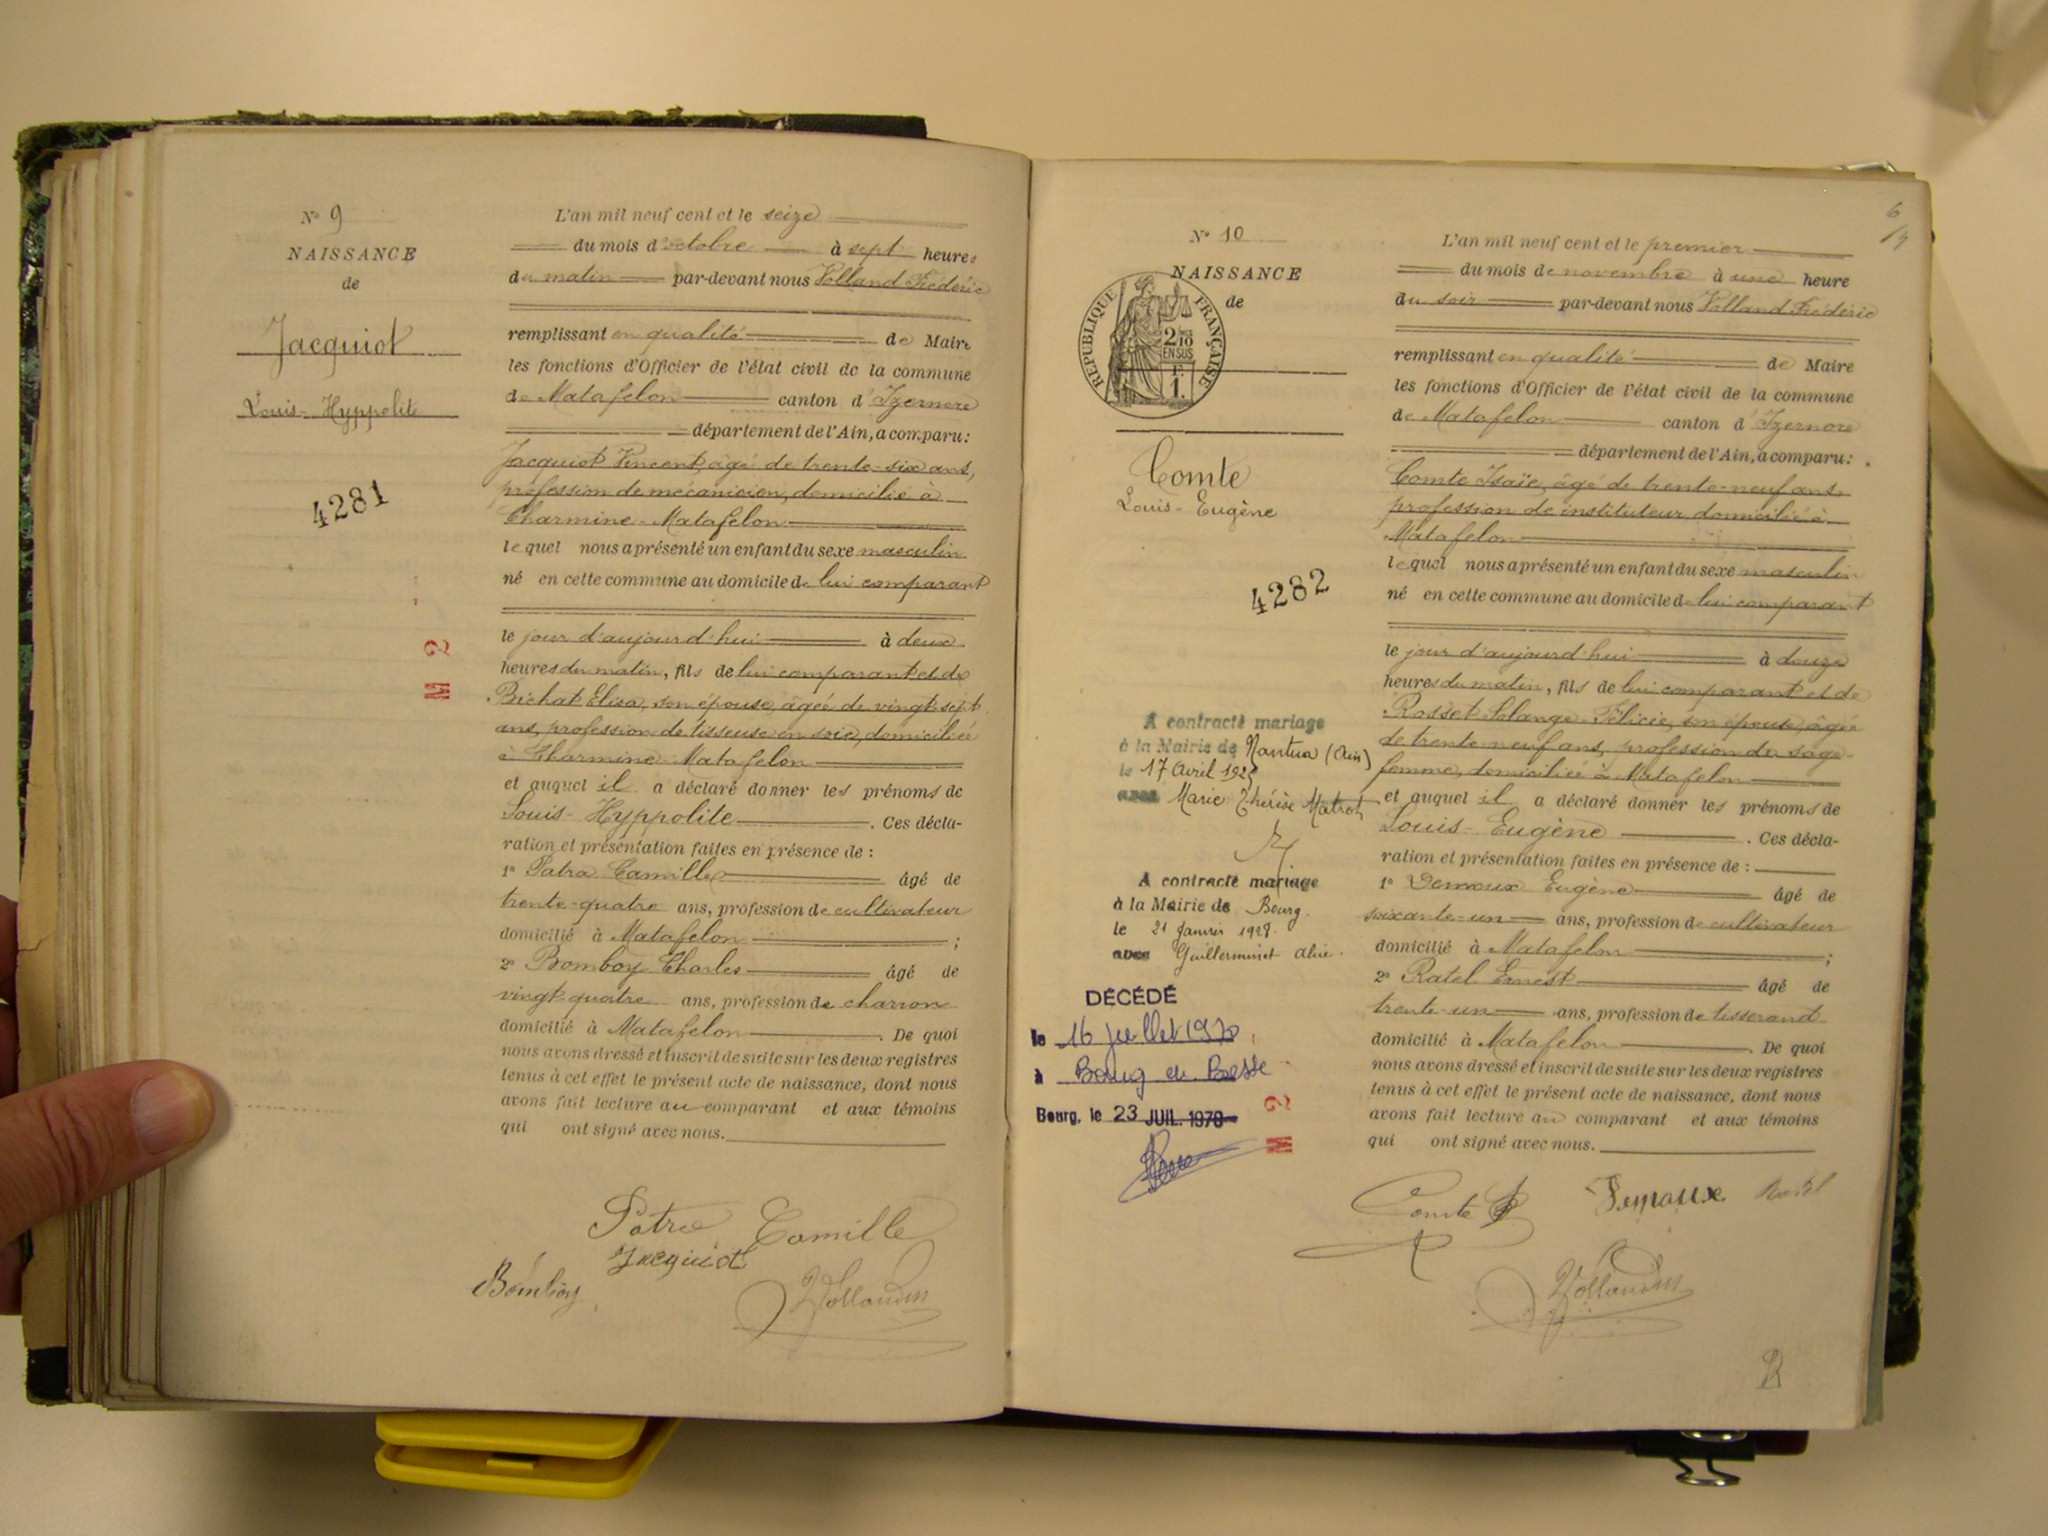 N° 9
NAISSANCE
de
Jacquiot
Louis-Hyppolite
4281
M 2
L'an mil neuf cent et le seize
du mois d'octobre à sept heures
du matin par-devant nous Volland Frédéric
remplissant en qualité de Maire
les fonctions d'Officier de l'état civil de la commune
de Matafelon canton d'Izernore
département de l'Ain, a comparu:
Jacquiot Vincent, âgé de trente-six ans,
profession de mécanicien, domicilié à
Charmine-Matafelon
lequel nous a présenté un enfant du sexe masculin
né en cette commune au domicile de lui comparant
le jour d'aujourd'hui à deux
heures du matin, fils de lui comparant et de
Bichat Elisa, son épouse, âgée de vingt-sept
ans, profession de tisseuse en soie, domiciliée
à Charmine-Matafelon
et auquel il a déclaré donner les prénoms de
Louis-Hyppolite. Ces décla-
ration et présentation faites en présence de :
1° Patra Camille âgé de
trente-quatre ans, profession de cultivateur
domicilié à Matafelon ;
2° Bomboy Charles âgé de
vingt-quatre ans, profession de charron
domicilié à Matafelon. De quoi
nous avons dressé et inscrit de suite sur les deux registres
tenus à cet effet le présent acte de naissance, dont nous
avons fait lecture au comparant et aux témoins
qui ont signé avec nous.
Patra Camille
Jacquiot
Bomboy
Volland
6
N° 10
NAISSANCE
de
RÉPUBLIQUE FRANÇAISE
2/10
EN SUS
1F.
Comte
Louis-Eugène
4282
A contracté mariage
à la Mairie de Nantua (Ain)
le 17 Avril 192
avec Marie Thérèse
A contracté mariage
à la Mairie de Bourg.
le 21 Janvier 1928.
avec Guillerminet Alice.
DÉCÉDÉ
le 16 juillet 1970
à Bourg en Bresse
Bourg, le 23 JUIL. 1970
M 2
L'an mil neuf cent et le premier
du mois de novembre à une heure
du soir par-devant nous Volland Frédéric
remplissant en qualité de Maire
les fonctions d'Officier de l'état civil de la commune
de Matafelon canton d'Izernore
département de l'Ain, a comparu:
Comte Isaïe, âgé de trente-neuf ans
profession de instituteur domicilié à
Matafelon
lequel nous a présenté un enfant du sexe masculin
né en cette commune au domicile de lui comparant
le jour d'aujourd'hui à douze
heures du matin, fils de lui comparant et de
Rosset Solange Félicie, son épouse, âgée
de trente-neuf ans, profession de sage-
femme, domiciliée à Matafelon
et auquel il a déclaré donner les prénoms de
Louis-Eugène. Ces décla-
ration et présentation faites en présence de :
1° Eugène âgé de
soixante-un ans, profession de cultivateur
domicilié à Matafelon ;
2° Ratel Ernest âgé de
trente-un ans, profession de tisserand
domicilié à Matafelon. De quoi
nous avons dressé et inscrit de suite sur les deux registres
tenus à cet effet le présent acte de naissance, dont nous
avons fait lecture au comparant et aux témoins
qui ont signé avec nous.
Comte Ratel
Volland